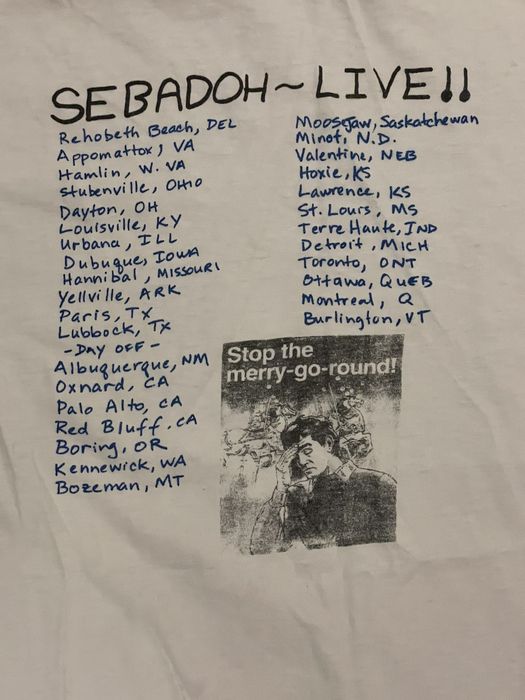 SEBADOH ~ LIVE!!
Rehobeth Beach, DEL
Appomattox, VA
Hamlin, W. VA
Stubenville, OHIO
Dayton, OH
Louisville, KY
Urbana, ILL
Dubuque, IOWA
Hannibal, MISSOURI
Yellville, ARK
Paris, TX
Lubbock, TX
- DAY OFF -
Albuquerque, NM
Oxnard, CA
Palo Alto, CA
Red Bluff. CA
Boring, OR
Kennewick, WA
Bozeman, MT
Moosejaw, Saskatchewan
Minot, N.D.
Valentine, NEB
Hoxie, KS
Lawrence, KS
St. Louis, MS
Terre Haute, IND
Detroit, MICH
Toronto, ONT
Ottawa, QUEB
Montreal, Q
Burlington, VT
Stop the
merry-go-round!